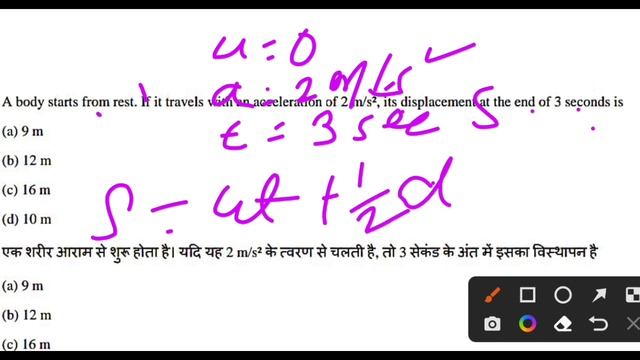 u = 0
a = 2 m/s
A body starts from rest. If it travels with an acceleration of 2 m/s², its displacement at the end of 3 seconds is
t = 3 sec S
(a) 9 m
(b) 12 m
(c) 16 m
S = ut + 1/2 a
(d) 10 m
एक शरीर आराम से शुरू होता है। यदि यह 2 m/s² के त्वरण से चलती है, तो 3 सेकंड के अंत में इसका विस्थापन है
(a) 9 m
(b) 12 m
(c) 16 m